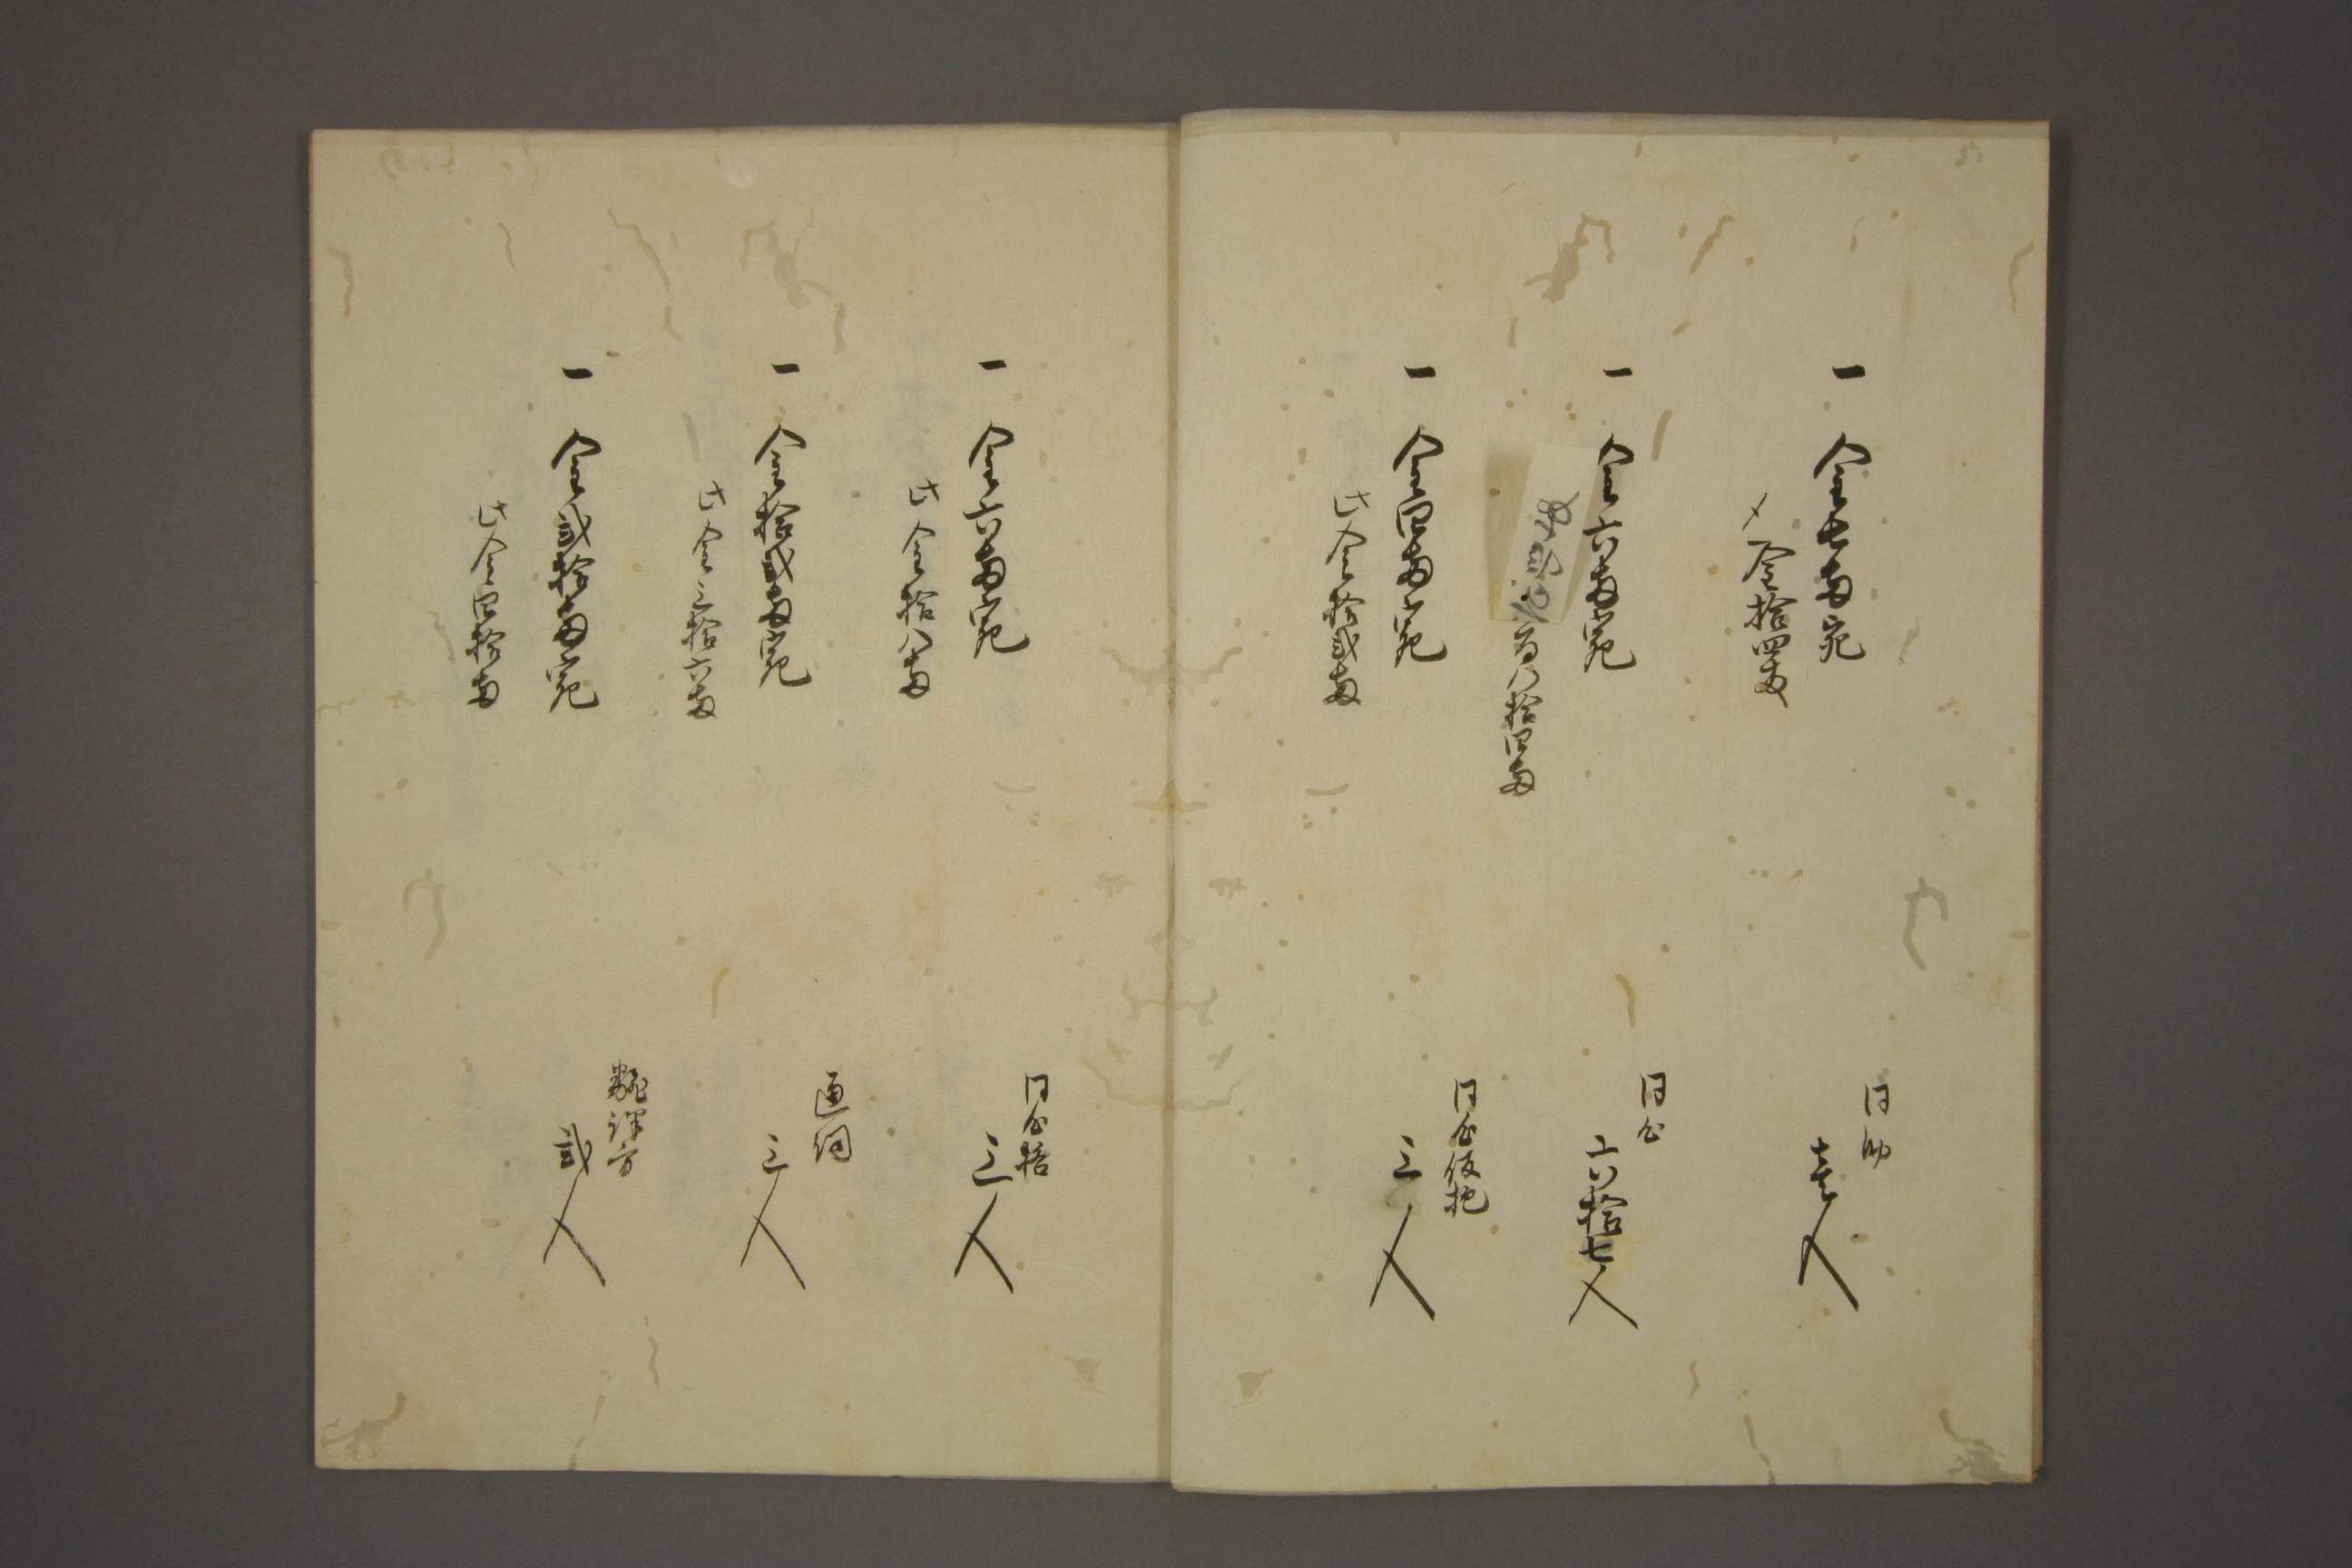 一 金七両宛
〆金拾四両
同助
壱人
一 金六両宛
百八拾四両
同心
六拾七人
一 金四両宛
此金拾弐両
同心仮抱
三人
一 金六両宛
此金拾八両
同心格
三人
一 金拾弐両宛
此金三拾六両
通詞
三人
一 金弐拾両宛
此金四拾両
飜譯方
弐人